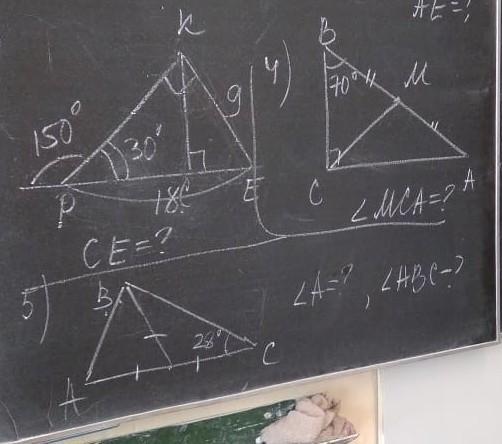 AE=?
K
150°
30°
9
P
18
C
E
CE=?
4)
B
70°
M
C
A
∠MCA=?
5)
B
28°
A
C
∠A=?, ∠ABC-?